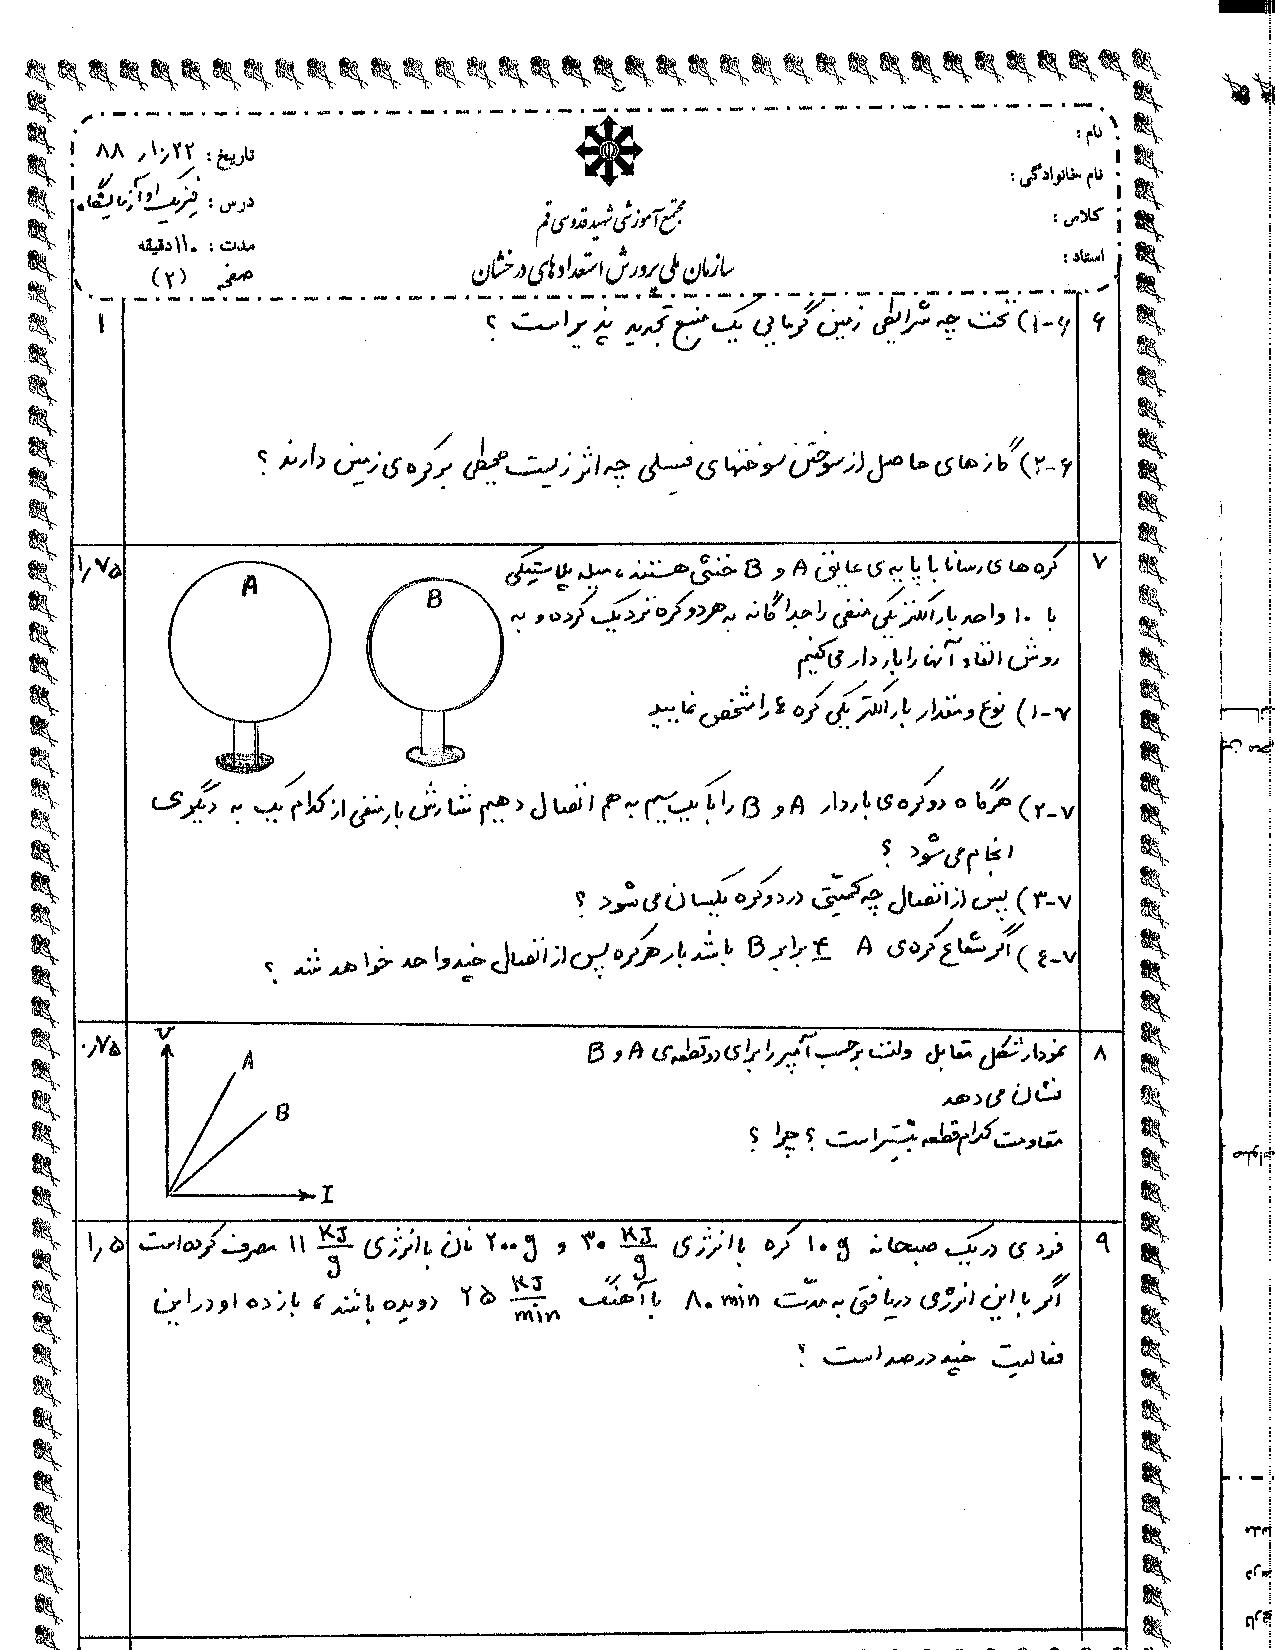 نام :
نام خانوادگی :
کلاس :
استاد :
مجتمع آموزشی شهید قدوسی قم
سازمان ملی پرورش استعدادهای درخشان
تاریخ : ۲۲ , ۸۸
درس : فیزیک ۱ و آزمایشگاه
مدت : ۱۱۰ دقیقه
صفحه (۲)
۶ ۶-۱) تحت چه شرایطی زمین گرمایی یک منبع تجدید پذیر است ؟ ۱
۶-۲) گازهای حاصل از سوختن سوختهای فسیلی چه اثر زیست محیطی بر کره ی زمین دارند ؟
۷ کره های رسانا با پایه ی عایق A و B خنثی هستند، میله پلاستیکی ۱٫۷۵
با ۱۰ واحد بار الکتریکی منفی را جداگانه به هر دو کره نزدیک کرده و به
روش القاء آنها را باردار می کنیم
۷-۱) نوع و مقدار بار الکتریکی کره ها را مشخص نمایید
۷-۲) هرگاه دو کره ی باردار A و B را با یک سیم به هم اتصال دهیم شارش بار منفی از کدام یک به دیگری
انجام می شود ؟
۷-۳) پس از اتصال چه کمیّتی در دو کره یکسان می شود ؟
۷-۴) اگر شعاع کره ی A ۴ برابر B باشد بار هر کره پس از اتصال چند واحد خواهد شد ؟
A
B
۸ نمودار شکل مقابل ولت بر حسب آمپر را برای دو قطعه ی A و B ۰٫۷۵
نشان می دهد
مقاومت کدام قطعه بیشتر است ؟ چرا ؟
V
A
B
I
۹ فردی در یک صبحانه ۱۰g کره با انرژی ۳۰ KJ/g و ۲۰۰g نان با انرژی ۱۱ KJ/g مصرف کرده است ۱٫۵
اگر با این انرژی دریافتی به مدّت ۸۰ min با آهنگ ۲۵ KJ/min دویده باشد، بازده او در این
فعالیت چند درصد است ؟